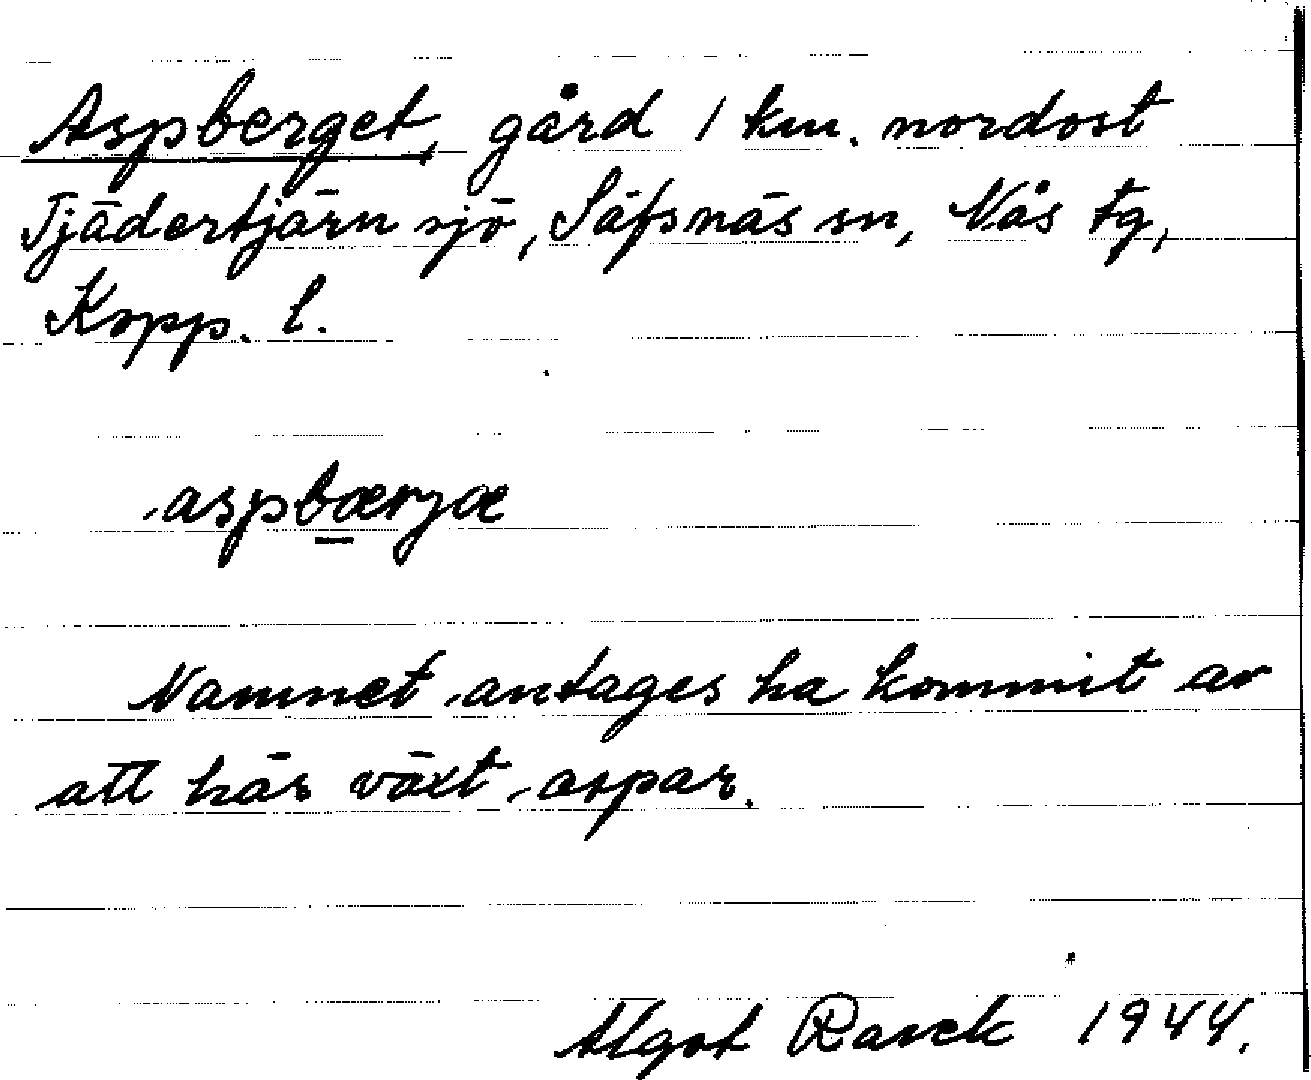 Aspberget, gård 1 km. nordost
Tjädertjärn sjö, Säfsnäs sn, Nås tg,
Kopp. l.
aspbærjæ
Namnet antages ha kommit av
att här växt aspar.
Algot Rask 1944.